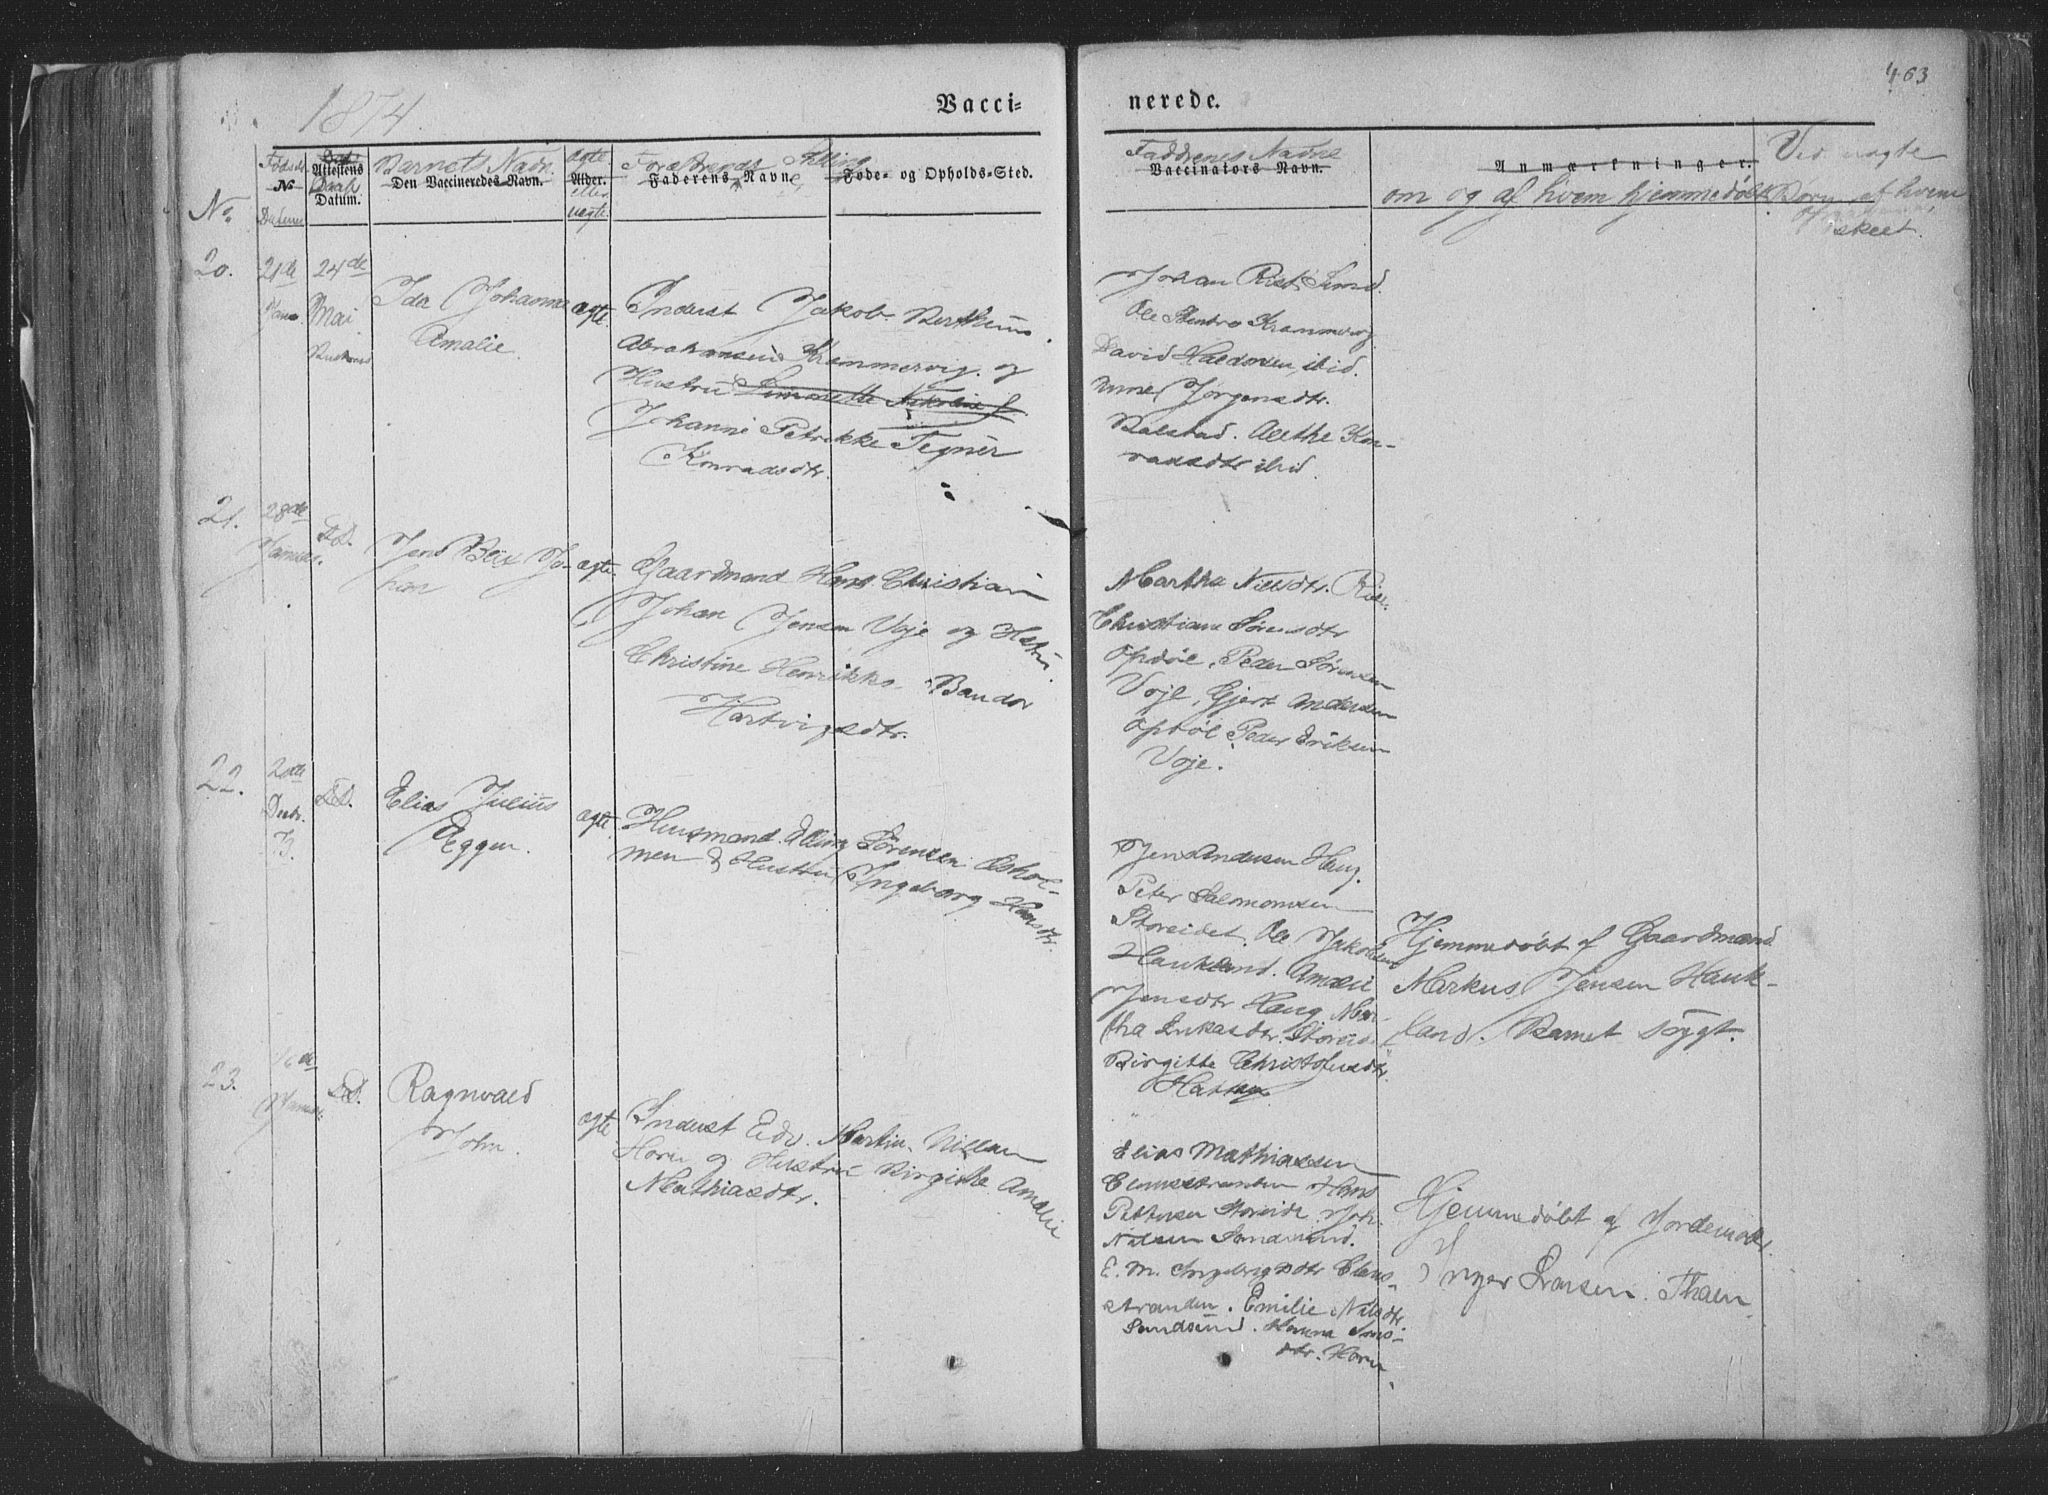 463
1874
Vacci-
nerede.
Fødsels
No
Datum
Attestens
Daab
Datum.
Barnets Navn
Den Vaccineredes Navn.
ægte
Alder.
eller
uægte
Forældrenes Stilling
Faderens Navn.
Føde- og Opholds-Sted.
Faddrenes Navne
Vaccinators Navn.
Anmærkninger.
om og af hvem hjemmedøbt
Ved uægte
Børn af hvem
skeet.
No.
20.
21de
Janr.
24de
Mai
Ida Johanna
Amalie.
ægte
Inderst Jakob Bertheus
Abrahamsen Kremmervig og
Hustru Simonette Nikoline J.
Johanne Petrikke Tegner
Konradsdtr.
Johan Rist Sund.
Ole Kremmervig
David Haldorsen, ibid.
Anne Jørgensdtr.
Balstad. Alethe Kon-
radsdtr ibid.
21.
28de
Januar.
D.D.
Jens Blix Jo-
han
ægte
Gaardmand Hans Christian
Johan Jensen Voje og Hstru
Christine Henrikke Bandor
Hartvigsdtr.
Martha Nilsdtr.
Christiane Sørensdtr
Opdøl, Peder Sørensen
Voje, Gjert Andersen
Opdøl Peder Eriksen
Voje.
22.
20de
Decbr.
73.
D.D.
Elias Julius
Eggen.
ægte
Husmand Elling Sørensen Oshol-
men & Hustru Ingeborg Hansdtr.
Jens Andersen Haug.
Peter Salomonsen
Storeidet. Ole Jakobsen
Haukland. Amalie
Jensdtr Haug. Mar-
tha Lukasdtr. Storeid.
Birgitte Christofersdtr.
Hjemmedøbt af Gaardmand
Markus Jensen Hauk-
land. Barnet sygt.
23.
16de
Januar.
D.D.
Ragnvald
John.
ægte
Inderst Edv. Martin Nilsen
Horn og Hustru Birgitte Amalie
Mathiasdtr.
Elias Mathiassen
Clausstranden Hans
Pettersen Storeide Joh.
Nilsen Sandsund.
E. M. Ingebrigtsdtr Claus-
stranden. Emilie Nilsdtr.
Sandsund. Hanna
dtr. Horn
Hjemmedøbt af Jordemoder
Inger Larsen. Thaen